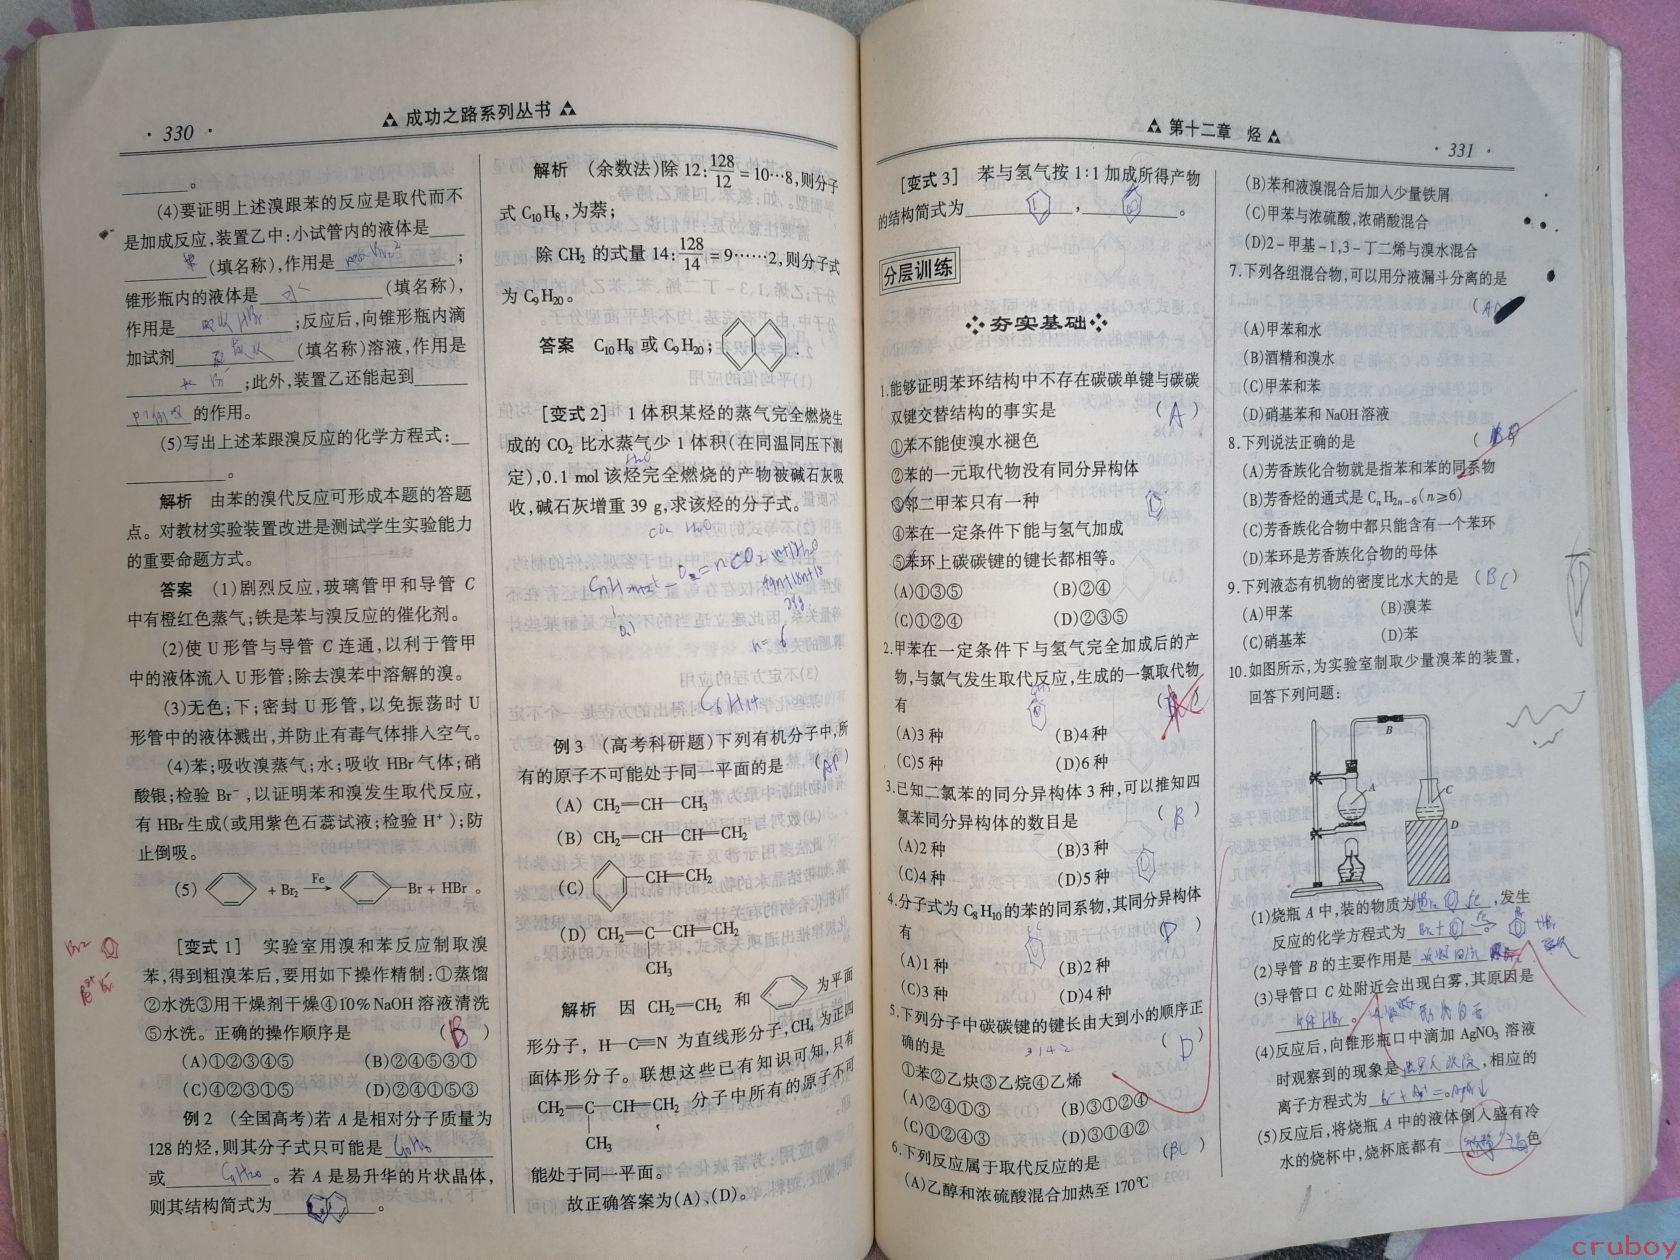 · 330 ·
成功之路系列丛书
。
(4)要证明上述溴跟苯的反应是取代而不
是加成反应,装置乙中:小试管内的液体是
苯 (填名称),作用是 吸收Br2 ;
锥形瓶内的液体是 水 (填名称),
作用是 吸收HBr ;反应后,向锥形瓶内滴
加试剂 (填名称)溶液,作用是
;此外,装置乙还能起到
的作用。
(5)写出上述苯跟溴反应的化学方程式:
。
解析 由苯的溴代反应可形成本题的答题
点。对教材实验装置改进是测试学生实验能力
的重要命题方式。
答案 (1)剧烈反应,玻璃管甲和导管 C
中有橙红色蒸气;铁是苯与溴反应的催化剂。
(2)使 U 形管与导管 C 连通,以利于管甲
中的液体流入 U 形管;除去溴苯中溶解的溴。
(3)无色;下;密封 U 形管,以免振荡时 U
形管中的液体溅出,并防止有毒气体排入空气。
(4)苯;吸收溴蒸气;水;吸收 HBr 气体;硝
酸银;检验 Br⁻,以证明苯和溴发生取代反应,
有 HBr 生成(或用紫色石蕊试液;检验 H⁺);防
止倒吸。
(5) + Br₂ Fe → —Br + HBr 。
[变式 1] 实验室用溴和苯反应制取溴
苯,得到粗溴苯后,要用如下操作精制:①蒸馏
②水洗③用干燥剂干燥④10% NaOH 溶液清洗
⑤水洗。正确的操作顺序是 ( B )
(A)①②③④⑤ (B)②④⑤③①
(C)④②③①⑤ (D)②④①⑤③
例 2 (全国高考)若 A 是相对分子质量为
128 的烃,则其分子式只可能是 C10H8
或 C9H20 。若 A 是易升华的片状晶体,
则其结构简式为 。
解析 (余数法)除 12: 128/12 = 10…8,则分子
式 C₁₀H₈,为萘;
除 CH₂ 的式量 14: 128/14 = 9……2,则分子式
为 C₉H₂₀。
答案 C₁₀H₈ 或 C₉H₂₀; .
[变式 2] 1 体积某烃的蒸气完全燃烧生
成的 CO₂ 比水蒸气少 1 体积(在同温同压下测
定),0.1 mol 该烃完全燃烧的产物被碱石灰吸
收,碱石灰增重 39 g,求该烃的分子式。
CO2 H2O
0.1
n= 6
C6H14
例 3 (高考科研题)下列有机分子中,所
有的原子不可能处于同一平面的是 ( AD )
(A) CH₂=CH—CH₃
(B) CH₂=CH—CH=CH₂
(C) —CH=CH₂
(D) CH₂=C—CH=CH₂
CH₃
解析 因 CH₂=CH₂ 和 为平面
形分子, H—C≡N 为直线形分子,CH₄ 为正四
面体形分子。联想这些已有知识可知,只有
CH₂=C—CH=CH₂ 分子中所有的原子不可
CH₃
能处于同一平面。
故正确答案为(A)、(D)。
第十二章 烃
· 331 ·
[变式 3] 苯与氢气按 1:1 加成所得产物
的结构简式为 , 。
分层训练
夯实基础
1.能够证明苯环结构中不存在碳碳单键与碳碳
双键交替结构的事实是 ( A )
①苯不能使溴水褪色
②苯的一元取代物没有同分异构体
③邻二甲苯只有一种
④苯在一定条件下能与氢气加成
⑤苯环上碳碳键的键长都相等。
(A)①③⑤ (B)②④
(C)①②④ (D)②③⑤
2.甲苯在一定条件下与氢气完全加成后的产
物,与氯气发生取代反应,生成的一氯取代物
有
(A)3 种 (B)4 种
(C)5 种 (D)6 种
3.已知二氯苯的同分异构体 3 种,可以推知四
氯苯同分异构体的数目是 ( B )
(A)2 种 (B)3 种
(C)4 种 (D)5 种
4.分子式为 C₈H₁₀的苯的同系物,其同分异构体
有 ( D )
(A)1 种 (B)2 种
(C)3 种 (D)4 种
5.下列分子中碳碳键的键长由大到小的顺序正
确的是 3142 ( D )
①苯②乙炔③乙烷④乙烯
(A)②④①③ (B)③①②④
(C)①②④③ (D)③①④②
6.下列反应属于取代反应的是 (BC )
(A)乙醇和浓硫酸混合加热至 170℃
(B)苯和液溴混合后加入少量铁屑
(C)甲苯与浓硫酸,浓硝酸混合
(D)2-甲基-1,3-丁二烯与溴水混合
7.下列各组混合物,可以用分液漏斗分离的是
( AD )
(A)甲苯和水
(B)酒精和溴水
(C)甲苯和苯
(D)硝基苯和 NaOH 溶液
8.下列说法正确的是
(A)芳香族化合物就是指苯和苯的同系物
(B)芳香烃的通式是 CₙH₂ₙ₋₆(n≥6)
(C)芳香族化合物中都只能含有一个苯环
(D)苯环是芳香族化合物的母体
9.下列液态有机物的密度比水大的是 ( BC )
(A)甲苯 (B)溴苯
(C)硝基苯 (D)苯
10.如图所示,为实验室制取少量溴苯的装置,
回答下列问题:
B
A
C
D
(1)烧瓶 A 中,装的物质为 ,发生
反应的化学方程式为
(2)导管 B 的主要作用是
(3)导管口 C 处附近会出现白雾,其原因是
。
(4)反应后,向锥形瓶口中滴加 AgNO₃ 溶液
时观察到的现象是 ,相应的
离子方程式为 Br⁻+Ag⁺=AgBr↓
(5)反应后,将烧瓶 A 中的液体倒入盛有冷
水的烧杯中,烧杯底部有 色
cruboy